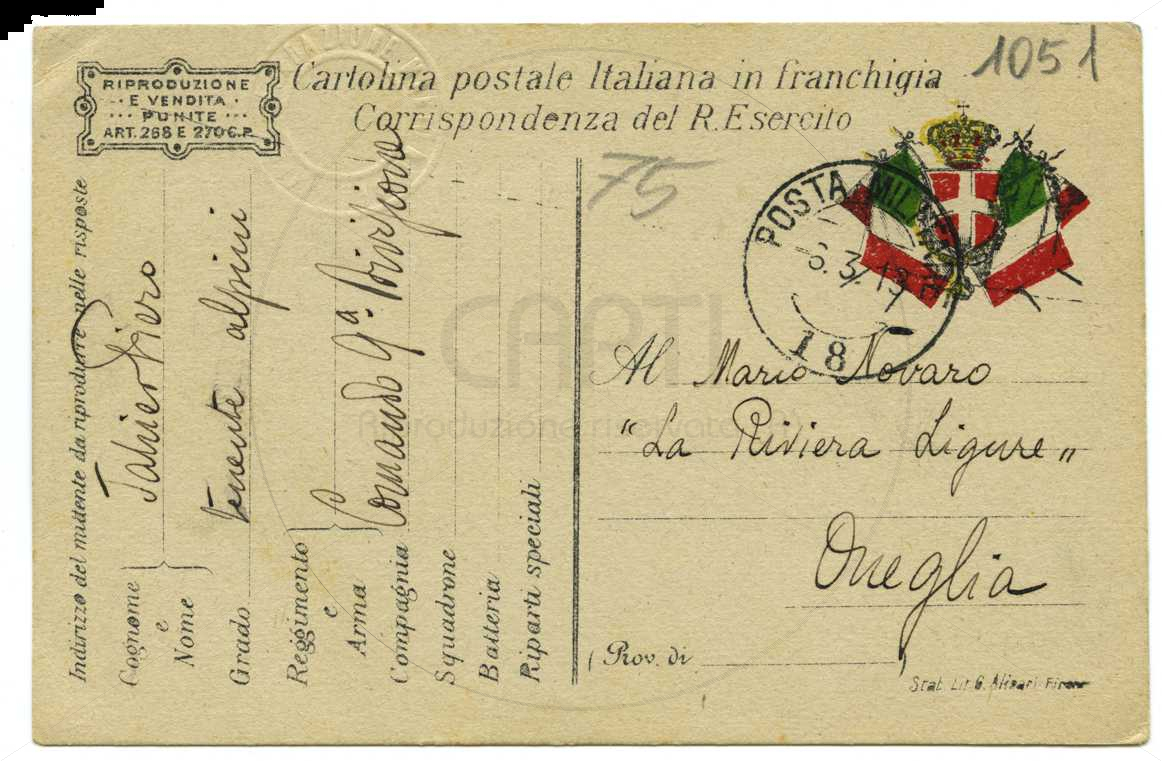 1051
RIPRODUZIONE
E VENDITA
PUNITE
ART. 268 E 270 C.P.
Cartolina postale Italiana in franchigia
Corrispondenza del R. Esercito
75
POSTA MILITARE
6.3.18
18
Al Mario Novaro
"La Riviera Ligure"
Oneglia
( Prov. di )
Stab. Lit. G. Alinari-Firenze
Indirizzo del mittente da riprodurre nelle risposte
Cognome e Nome Jahier Piero
Grado tenente alpini
Reggimento e Arma
Compagnia Comando 9ª Divisione
Squadrone
Batteria
Riparti speciali
Riproduzione riservata